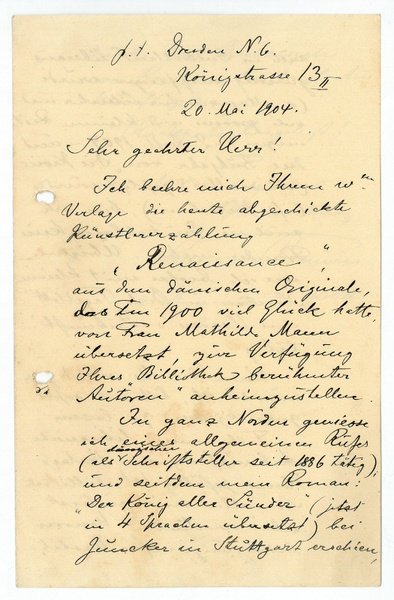 p. t. Dresden N. 6.
Königstrasse 13 II
20. Mai 1904.
Sehr geehrter Herr!
Ich beehre mich Ihrem w<sup>ten</sup>
Verlage die heute abgeschickte
Künstlererzählung
"Renaissance",
aus dem dänischen Originale,
das Im 1900 viel Glück hatte,
von Frau Mathilde Mann
übersetzt, zur Verfügung
Ihres Bibliothek berühmter
Autoren" anheimzustellen.
In ganz Norden geniesse
ich eines allgemeinen Rufes
(als dänischer Schriftsteller seit 1886 tätig),
und seitdem mein Roman:
"Der König aller Sünder" (jetzt
in 4 Sprachen übersetzt) bei
Juncker in Stuttgart erschien,